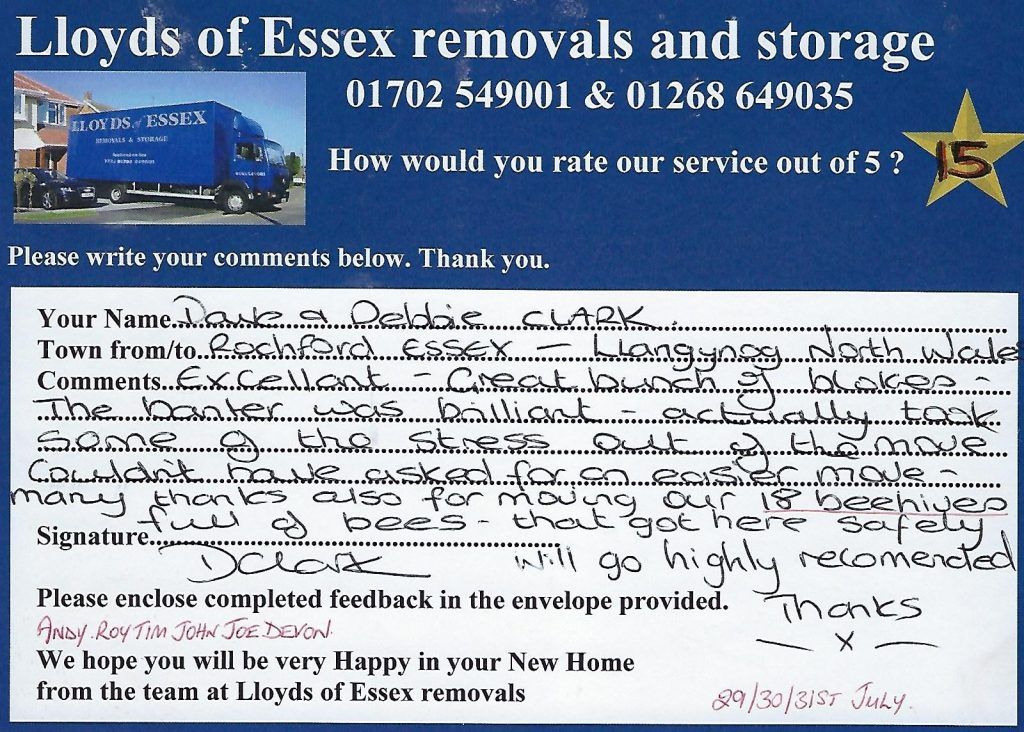 Lloyds of Essex removals and storage
01702 549001 & 01268 649035
LLOYDS of ESSEX
REMOVALS & STORAGE
How would you rate our service out of 5 ?
15
Please write your comments below. Thank you.
Your Name Dave & Debbie CLARK.
Town from/to Rochford ESSEX - Llangynog North Wales
Comments Excellant - Great bunch of blokes -
The banter was brilliant - actually took
some of the stress out of the move
Couldn't have asked for an easier move -
many thanks also for moving our 18 beehives
full of bees - that got here safely
Signature
DClark will go highly recomended
Please enclose completed feedback in the envelope provided.
Thanks
ANDY. ROY TIM JOHN JOE DEVON.
— x —
We hope you will be very Happy in your New Home
from the team at Lloyds of Essex removals
29/30/31ST JULY.